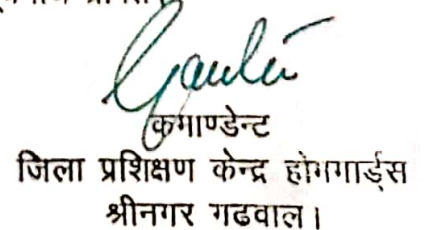 कमाण्डेन्ट
जिला प्रशिक्षण केन्द्र होमगार्ड्स
श्रीनगर गढवाल।